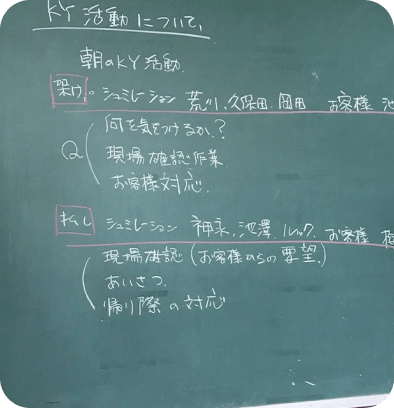 KY活動について、
朝のKY活動.
架け。シュミレーション 荒川、久保田、岡田 お客様 池
何を気をつけるか?
Q 現場確認作業
お客様対応.
払し シュミレーション 神永、池澤、ルック、お客様
現場確認(お客様からの要望.)
あいさつ.
帰り際の対応